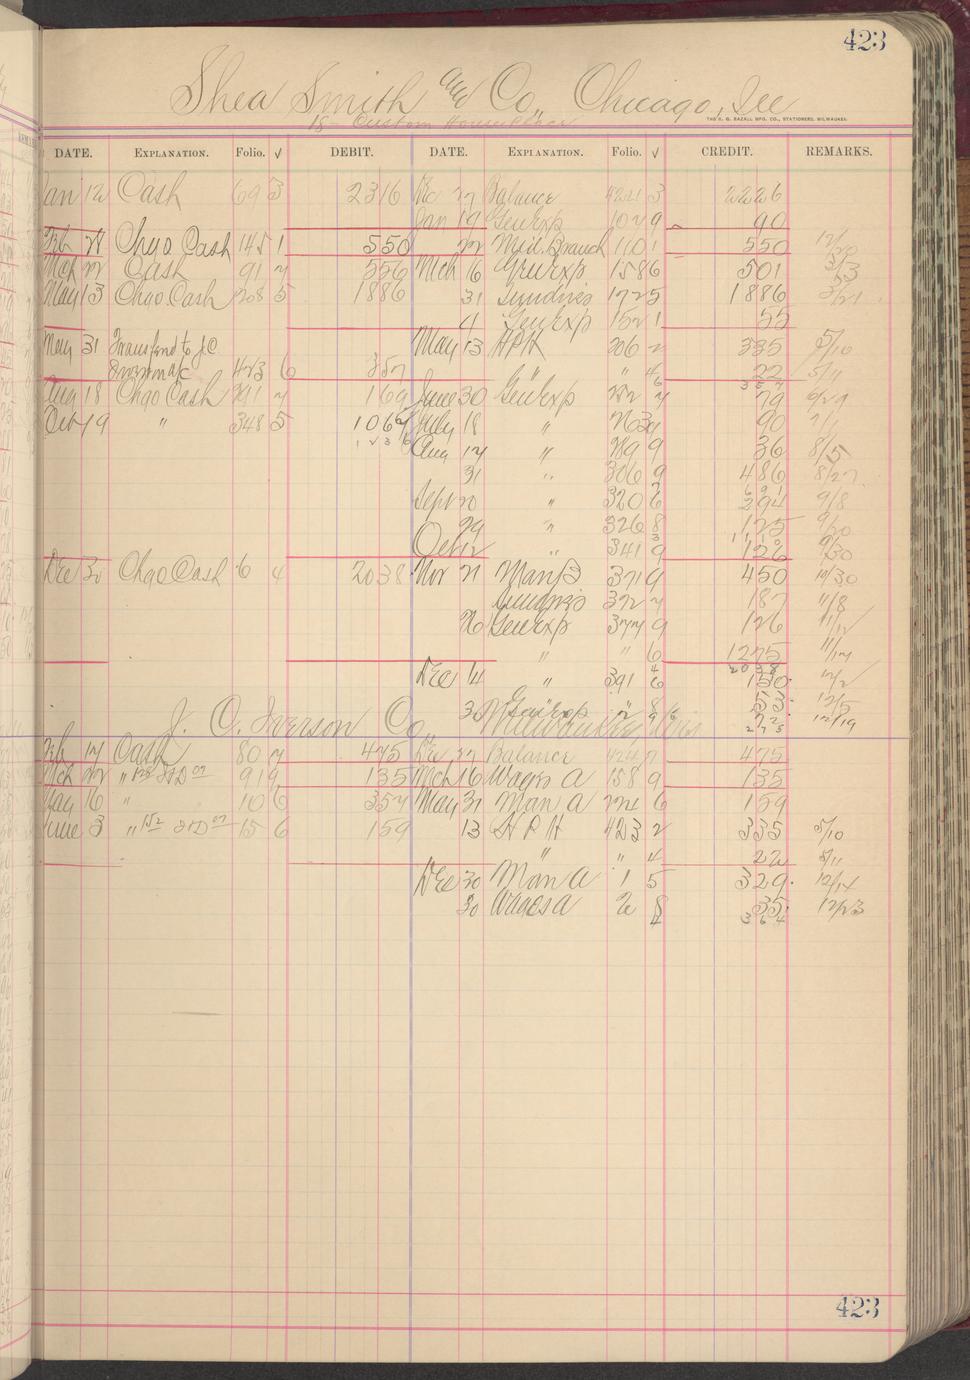 423
Shea Smith and Co., Chicago, Ill
18 Custom House Place
THE H. G. RAZALL MFG. CO., STATIONERS, MILWAUKEE.
DATE. EXPLANATION. Folio. √ DEBIT. DATE. EXPLANATION. Folio. √ CREDIT. REMARKS.
Jan 12 Cash 69 3 2316 Dec 27 Balance 3 2226
Jan 19 Gen Exp 102 9 90
Feb 28 Chgo Cash 145 1 550 22 Neil. Branch 110 1 550
Mch 22 Cash 91 7 556 Mch 16 Gen Exp 158 6 501 3/3
May 13 Chgo Cash 208 5 1886 31 Sundries 172 5 1886 3/21
4 Gen Exp 152 1 55
May 31 Transferd to J.C. May 13 H P K 206 2 335 5/10
Iverson a/c 423 6 357 " " 4 22 5/11
357
Aug 18 Chgo Cash 291 7 169 June 30 Gen Exp 79 6/27
Oct 19 " 348 5 1067 July 18 " 90 7/1
1236 Aug 12 " 289 9 36 8/5
31 " 306 9 486 8/27
691
Sept 20 " 320 6 294 9/8
29 " 326 8 125 9/20
Oct 12 " 341 9 126 9/30
Dec 30 Chgo Cash 6 4 2038 Nov 21 Man B 371 9 450 10/30
Sundries 372 7 187 11/8
26 Gen Exp 377 9 126 11/12
" " 6 1275 11/17
2038
Dec 14 " 391 6 150 12/2
53 12/5
J. C. Iverson Co., Milwaukee Wis
3 Gen Exp 2 8 72 12/19
275
Feb 17 Cash 80 7 475 Dec 27 Balance 424 7 475
Mch 22 " 91 9 135 Mch 16 Wages A 158 9 135
May 16 " 10 6 357 May 31 Man A 224 6 159
June 3 " 15 6 159 13 H P K 423 2 335 5/10
" " 4 22 5/11
Dec 30 Man A 1 5 329 12/14
30 Wages A 2 8 35 12/23
364
423